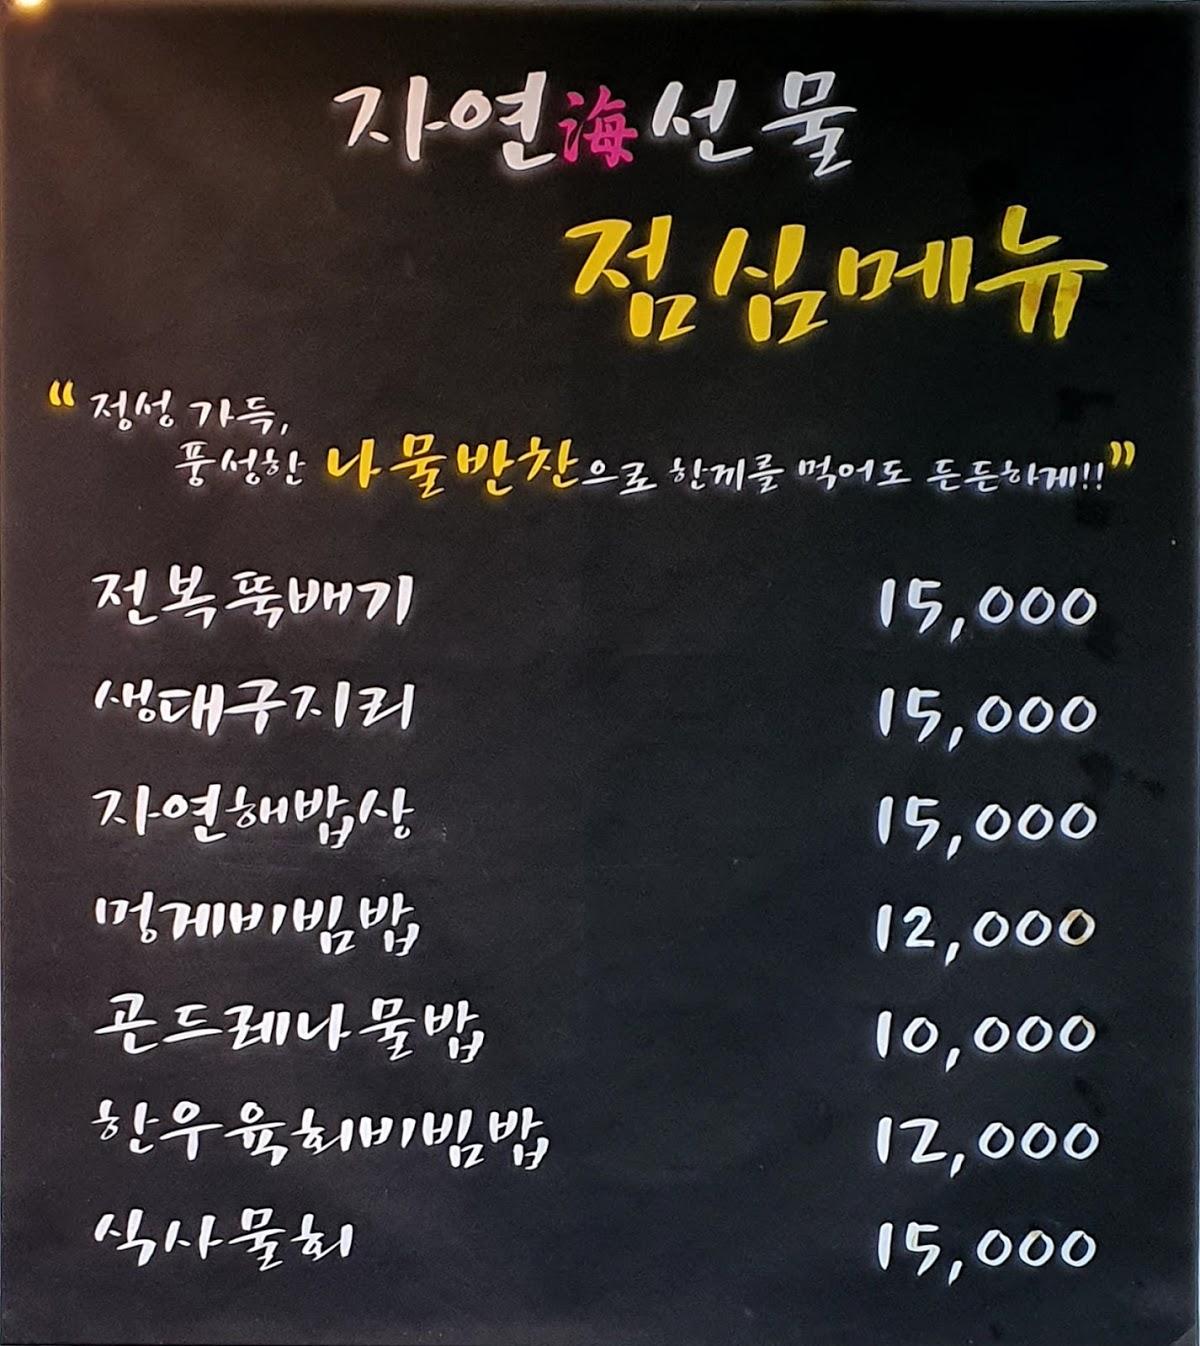 자연海선물
점심메뉴
“ 정성 가득,
풍성한 나물반찬으로 한끼를 먹어도 든든하게!! ”
전복뚝배기 15,000
생대구지리 15,000
자연해밥상 15,000
멍게비빔밥 12,000
곤드레나물밥 10,000
한우육회비빔밥 12,000
식사물회 15,000